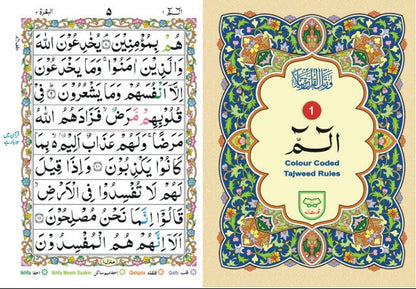 البقرة ٢
٥
الٓمّٓ ١
هُمْ بِمُؤْمِنِيْنَ ۘ‏ ﴿۸﴾ يُخٰدِعُوْنَ اللّٰهَ
وَالَّذِيْنَ اٰمَنُوْا ۚ وَمَا يَخْدَعُوْنَ
اِلَّاۤ اَنْفُسَهُمْ وَمَا يَشْعُرُوْنَ ؕ‏ ﴿۹﴾ فِىْ
قُلُوْبِهِمْ مَّرَضٌ ۙ فَزَادَهُمُ اللّٰهُ
مَرَضًا ۚ وَلَهُمْ عَذَابٌ اَلِيْمٌۢ ۙ بِمَا
كَانُوْا يَكْذِبُوْنَ ‏ ﴿۱۰﴾ وَاِذَا قِيْلَ
لَهُمْ لَا تُفْسِدُوْا فِى الْاَرْضِ ۙ
قَالُوْاۤ اِنَّمَا نَحْنُ مُصْلِحُوْنَ ‏ ﴿۱۱﴾
اَلَاۤ اِنَّهُمْ هُمُ الْمُفْسِدُوْنَ
Ikhfa اخفا Ikhfa Meem Saakin اخفا میم ساکن Qalqala قلقلہ Qalb قلب
1
الٓمّٓ
Colour Coded
Tajweed Rules